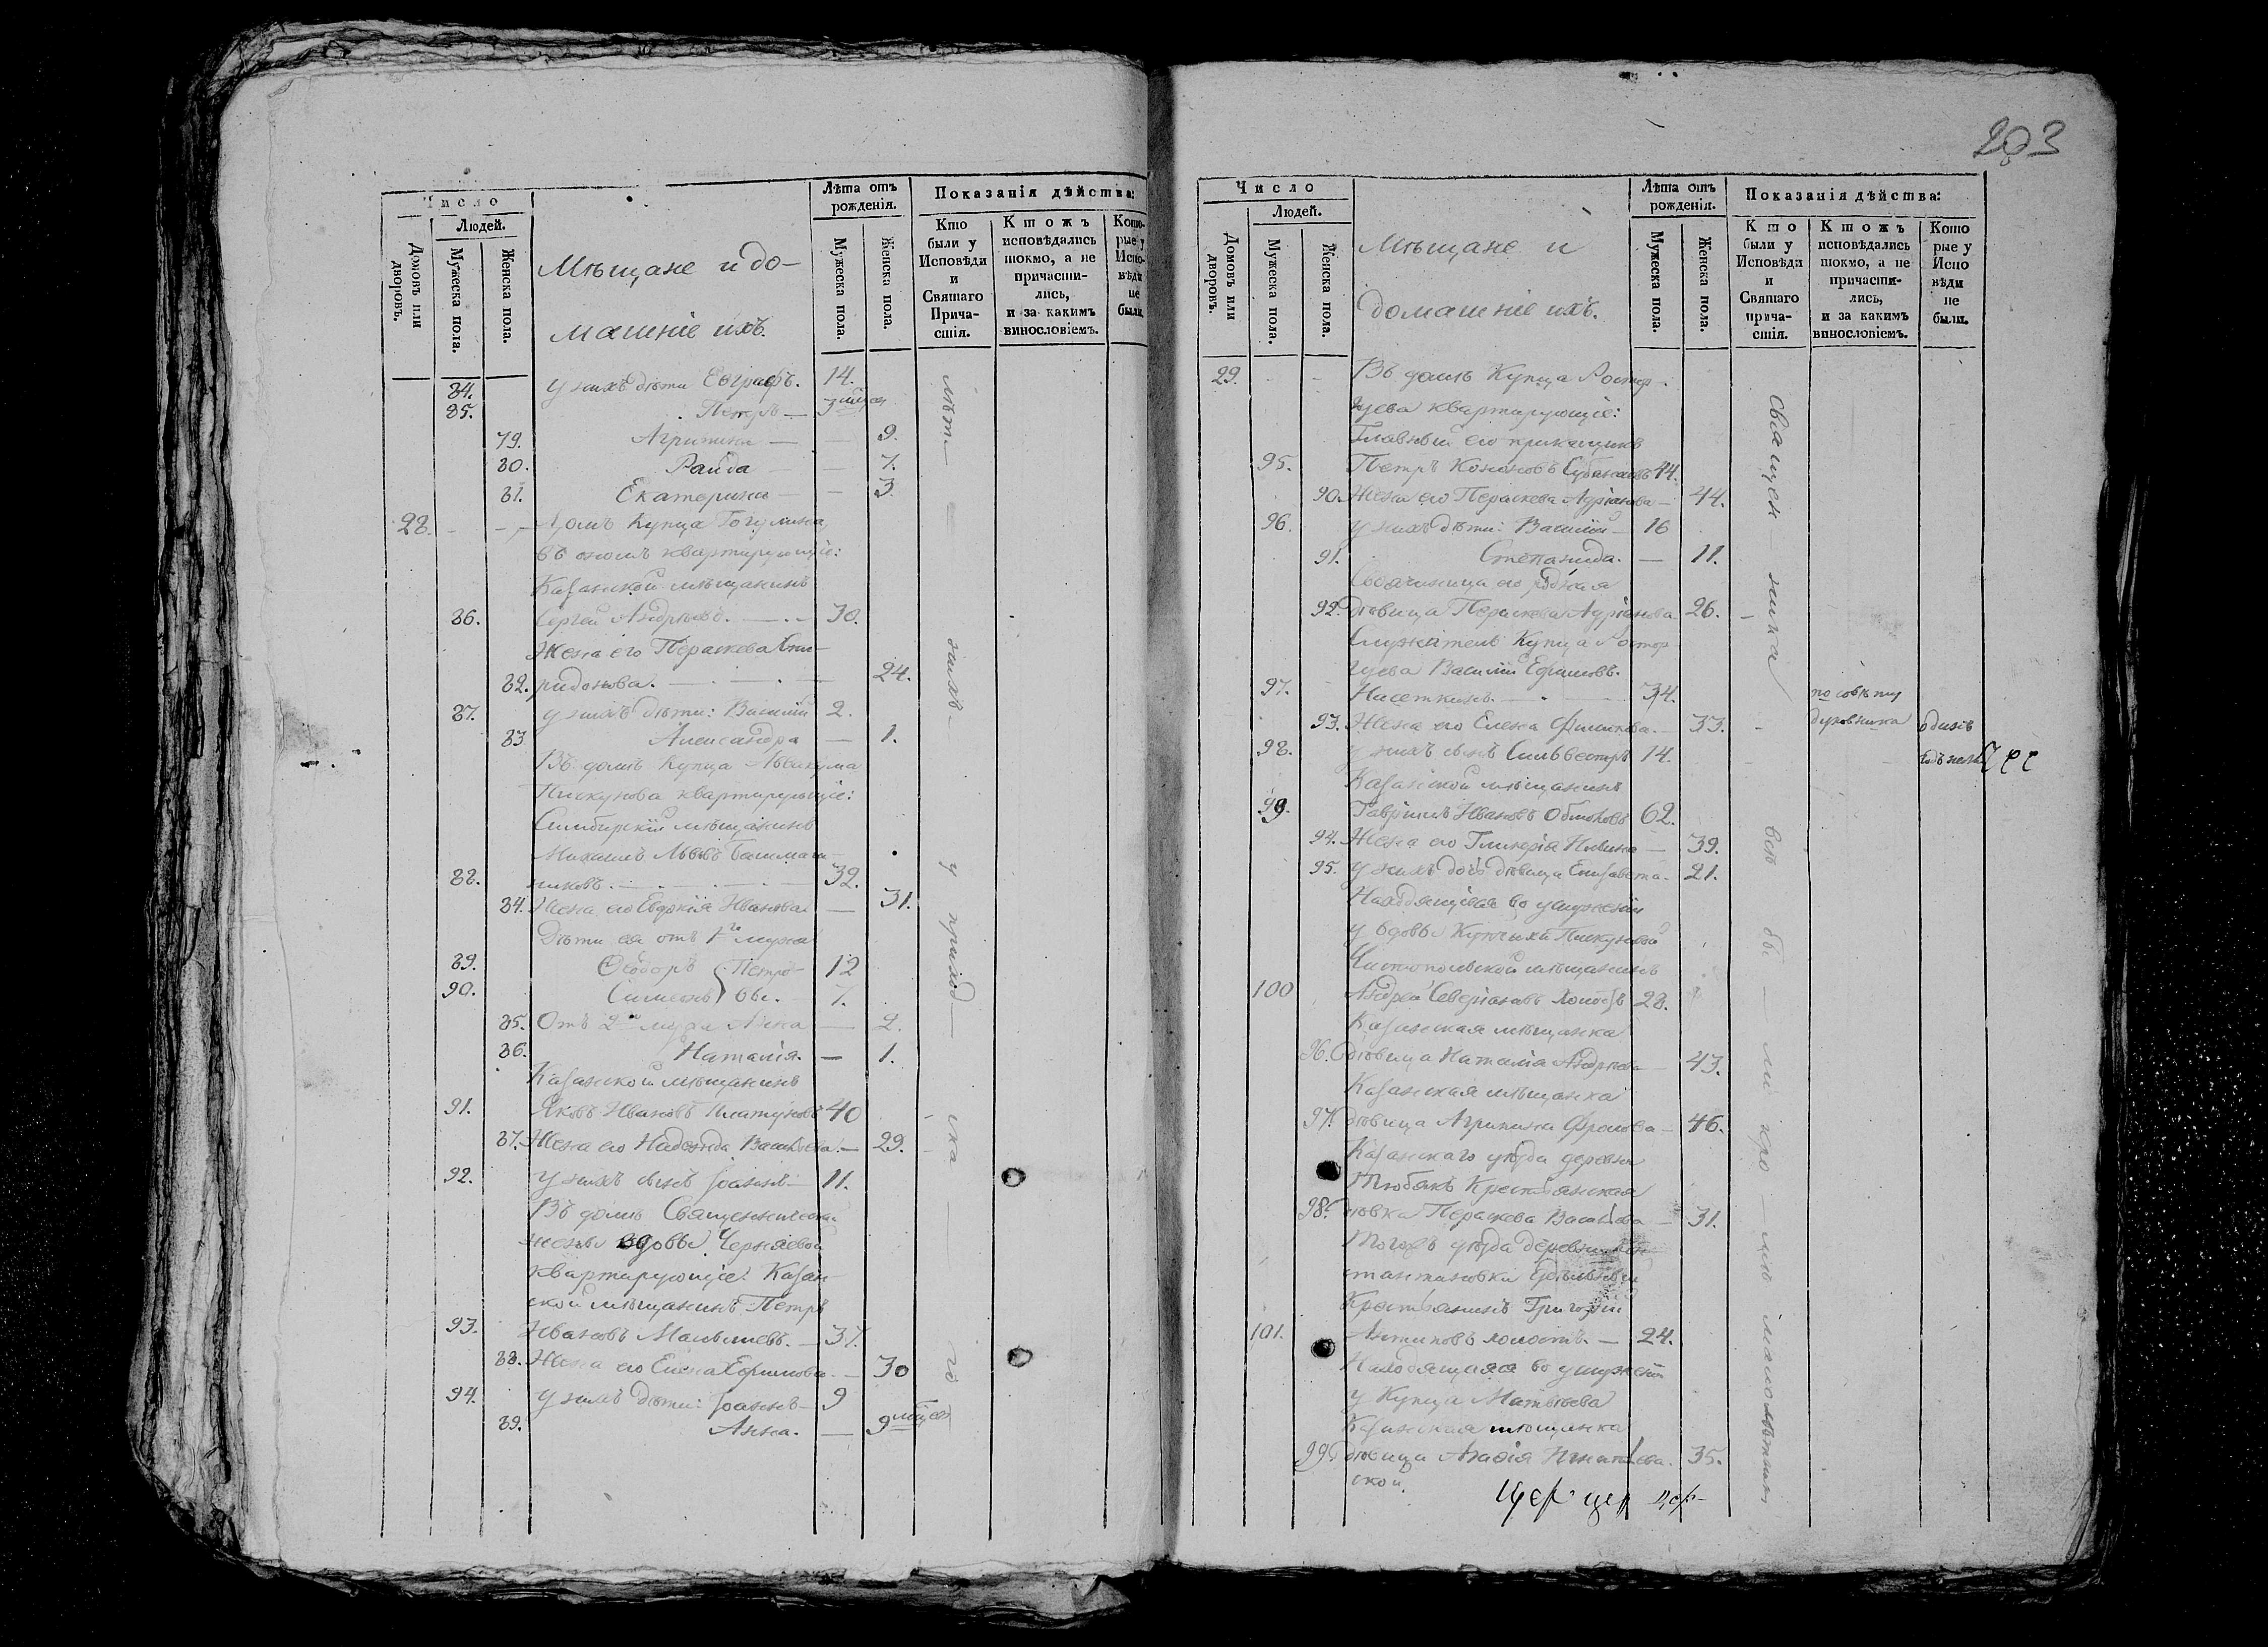 Число
Людей.
Домовъ или дворовъ.
Мужеска пола.
Женска пола.
Мѣщане и до-
машніе ихъ.
Лѣта отъ рожденія.
Мужеска пола.
Женска пола.
Показанія дѣйства:
Кто были у Исповѣди и Святаго Прича-стія.
Ктожъ исповѣдались токмо, а не причасти-лись, и за какимъ винословіемъ.
Кото-рые у Испо-вѣди не были.
84. у нихъ дѣти Евграфъ. 14.
85. Петръ — 3 мѣсяц
79. Агрипина — — 9.
80. Раида — 7.
81. Екатерина — — 3
28. Домъ Купца
въ ономъ квартирующіе:
Казанской мѣщанинъ
86. Сергей Андрѣевъ. — 30.
Жена его Параскева Спи-
82. ридонова. — 24.
87. у нихъ дѣти: Василій 2.
83 Александра — 1.
Въ домѣ Купца Аввакума
Пискунова квартирующіе:
Симбирскій мѣщанинъ
Михаилъ Львовъ Башмаш-
88. никовъ. — 32.
84. Жена его Евдокія Иванова — 31.
Дѣти ея отъ 1го мужа
89. Ѳеодоръ Петро- 12
90. Симеонъ вы. — 7.
85. Отъ 2го мужа Анна — 2.
86. Наталія. — 1.
Казанской мѣщанинъ
91. Яковъ Ивановъ Платуновъ 40
87. Жена его Надежда Васильева. — 29.
92. у нихъ сынъ Іоаннъ — 11.
Въ домѣ Священнической
жены вдовы Черняевой
квартирующіе: Казан-
ской мѣщанинъ Петръ
93. Ивановъ Малышевъ. — 37.
88. Жена его Елена Ефимова — 30
94. у нихъ дѣти: Іоаннъ — 9
89. Анна. — 9 мѣсяц
лѣт — нихъ — у
203
Число
Людей.
Домовъ или дворовъ.
Мужеска пола.
Женска пола.
Мѣщане и
домашніе ихъ.
Лѣта отъ рожденія.
Мужеска пола.
Женска пола.
Показанія дѣйства:
Кто были у Исповѣди и Святаго прича-стія.
Ктожъ исповѣдались токмо, а не причасти-лись, и за какимъ винословіемъ.
Кото рые у Испо вѣди не были.
29. Въ домѣ Купца Растор-
гуева квартирующіе:
Главный его прикащикъ
95. Петръ Кононовъ 44.
90. Жена его Параскева Адріанова — 44.
96. у нихъ дѣти: Василій — 16
91. Степанида. — 11.
Своячиница его родная
92. дѣвица Параскева Адріанова 26.
Служитель Купца Растор
гуева Василій Ефимовъ.
97. Насеткинъ. — 34.
93. Жена его Елена Филипова. — 33.
98. у нихъ сынъ Сильвестръ 14.
Казанской мѣщанинъ
99. Гавріилъ Ивановъ 62.
94. Жена его Гликерія Ильина — 39.
95. у нихъ дочь дѣвица Елизавета. 21.
Находящіеся во услуженіи
у вдовы Купчихи Пискуновой
Чистопольской мѣщанинъ
100 Андрей Северіановъ холостъ 28.
Казанская мѣщанка
96. дѣвица Наталіа Андрѣева — 43.
Казанская мѣщанка
97. дѣвица Агрипина Фролова — 46.
Казанскаго уѣзда деревни
Тюбякъ Крестьянская
98. дѣвка Параскева Васильева — 31.
Тогожъ уѣзда деревни Кон-
стантиновки Удѣльный
Крестьянинъ Григорій
101. Антиповъ холостъ. — 24.
Находящаяся во услуженіи
у Купца Матвѣева
Казанская мѣщанка
99. дѣвица Агафія Игнатьева. 35.
Священ — ника
по совѣту
духовника